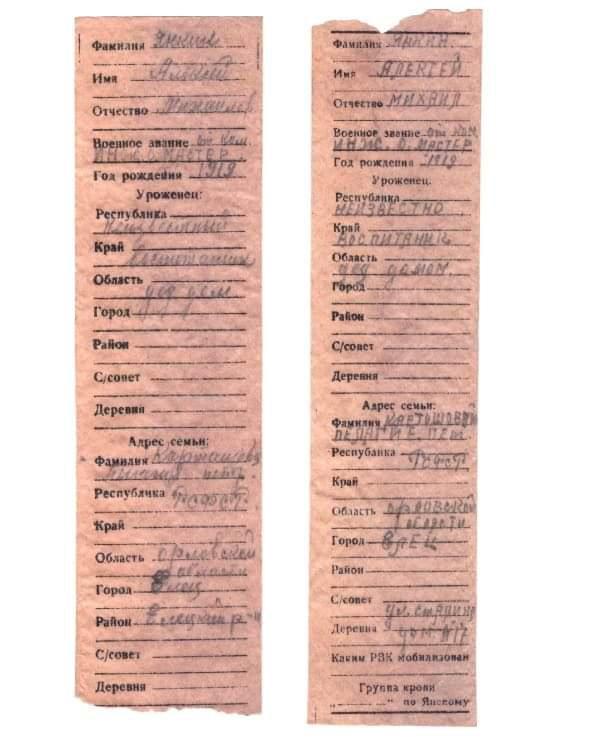 Фамилия Янкин
Имя Алексей
Отчество Михайлов
Военное звание от ком.
инж. о. мастер.
Год рождения 1919
Уроженец:
Республика
Неизвестный
Край
воспитанник
Область
дед дом
Город
Район
С/совет
Деревня
Адрес семьи:
Фамилия
петр.
Республика РСФСР.
Край
Область орловской
области
Город Елец
Район Елецкий р-н
С/совет
Деревня
Фамилия ЯНКИН
Имя АЛЕКСЕЙ
Отчество МИХАИЛ
Военное звание от ком.
ИНЖ. О. МАСТЕР
Год рождения 1919
Уроженец:
Республика
НЕИЗВЕСТНО
Край
ВОСПИТАНИК
Область
дед домом.
Город
Район
С/совет
Деревня
Адрес семьи:
Фамилия
ПЕТ.
Республика РСФСР.
Край
Область орловской
области
Город ЕЛЕЦ
Район
С/совет
ул. сталина
Деревня дом. №17
Каким РВК мобилизован
Группа крови
„ “ по Янскому